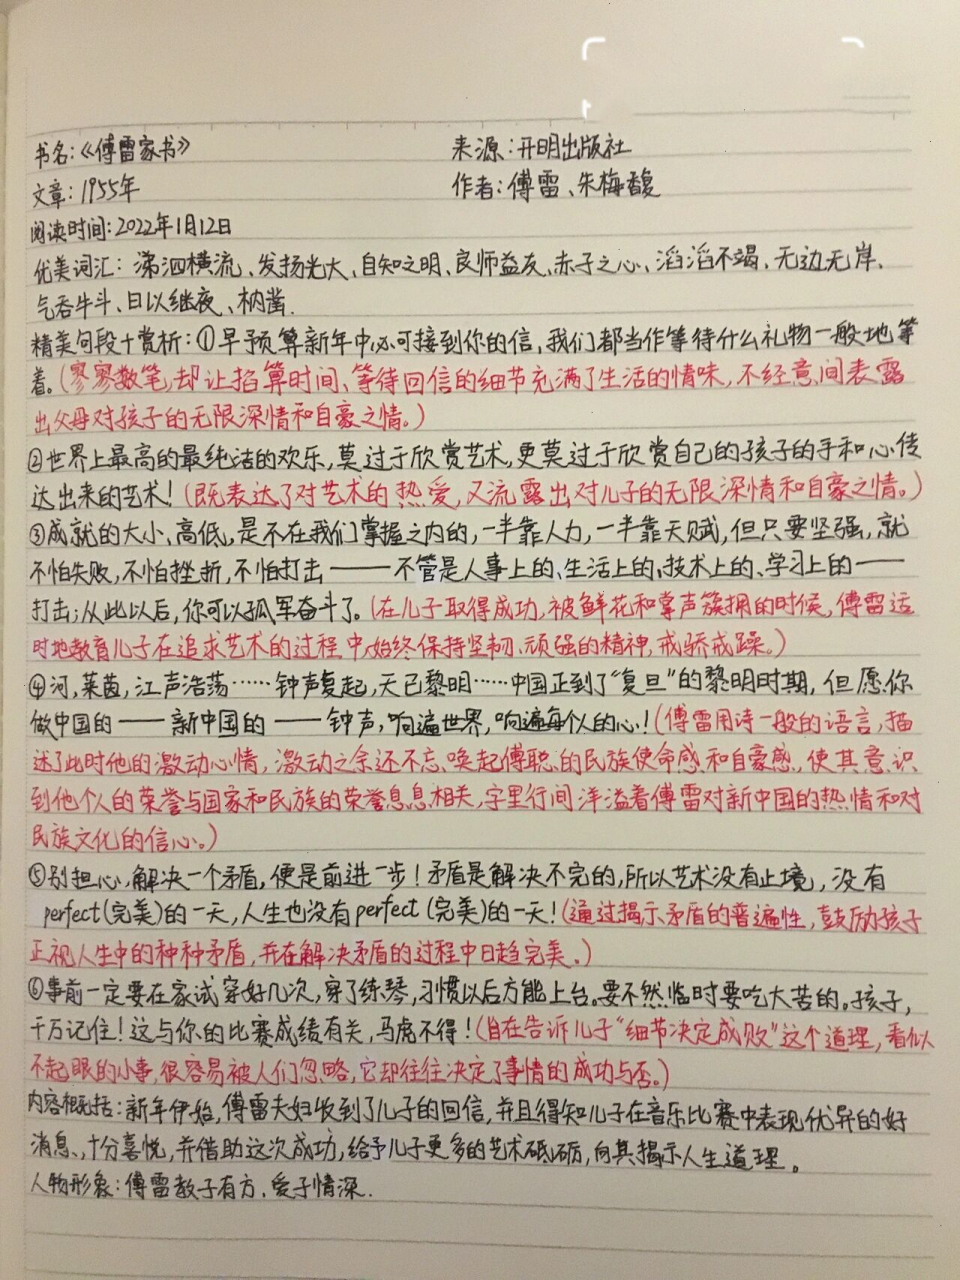 书名:《傅雷家书》 来源:开明出版社
文章:1955年 作者:傅雷、朱梅馥
阅读时间:2022年1月12日
优美词汇:涕泗横流、发扬光大、自知之明、良师益友、赤子之心、滔滔不竭、无边无岸、
气吞牛斗、日以继夜、枘凿.
精美句段+赏析:①早预算新年中必可接到你的信,我们都当作等待什么礼物一般地等
着。(寥寥数笔,却让掐算时间、等待回信的细节充满了生活的情味,不经意间表露
出父母对孩子的无限深情和自豪之情。)
②世界上最高的最纯洁的欢乐,莫过于欣赏艺术,更莫过于欣赏自己的孩子的手和心传
达出来的艺术!(既表达了对艺术的热爱,又流露出对儿子的无限深情和自豪之情。)
③成就的大小、高低,是不在我们掌握之内的,一半靠人力,一半靠天赋,但只要坚强,就
不怕失败,不怕挫折,不怕打击——不管是人事上的、生活上的、技术上的、学习上的——
打击;从此以后,你可以孤军奋斗了。(在儿子取得成功,被鲜花和掌声簇拥的时候,傅雷适
时地教育儿子在追求艺术的过程中,始终保持坚韧、顽强的精神,戒骄戒躁。)
④河,莱茵,江声浩荡……钟声复起,天已黎明……中国正到了“复旦”的黎明时期,但愿你
做中国的——新中国的——钟声,响遍世界,响遍每个人的心!(傅雷用诗一般的语言,描
述了此时他的激动心情,激动之余还不忘唤起傅聪的民族使命感和自豪感,使其意识
到他个人的荣誉与国家和民族的荣誉息息相关,字里行间洋溢着傅雷对新中国的热情和对
民族文化的信心。)
⑤别担心,解决一个矛盾,便是前进一步!矛盾是解决不完的,所以艺术没有止境,没有
perfect(完美)的一天,人生也没有perfect(完美)的一天!(通过揭示矛盾的普遍性,鼓励孩子
正视人生中的种种矛盾,并在解决矛盾的过程中日趋完美。)
⑥事前一定要在家试穿好几次,穿了练琴,习惯以后方能上台。要不然临时要吃大苦的。孩子,
千万记住!这与你的比赛成绩有关,马虎不得!(旨在告诉儿子“细节决定成败”这个道理,看似
不起眼的小事,很容易被人们忽略,它却往往决定了事情的成功与否。)
内容概括:新年伊始,傅雷夫妇收到了儿子的回信,并且得知儿子在音乐比赛中表现优异的好
消息,十分喜悦,并借助这次成功,给予儿子更多的艺术砥砺,向其揭示人生道理。
人物形象:傅雷教子有方,爱子情深.